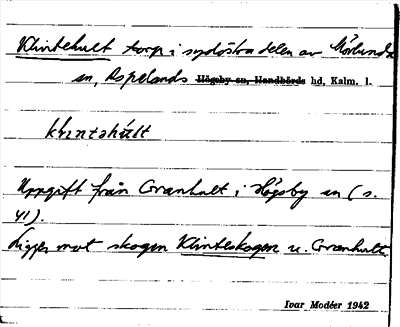 Klintehult torp i sydöstra delen av Mörlunda
sn, Aspelands Högsby sn, Handbörds hd, Kalm. l.
klìntəhúlt
Uppgift från Granhult i Högsby sn (s.
41).
Ligger mot skogen Klinteskogen u. Granhult.
Ivar Modéer 1942